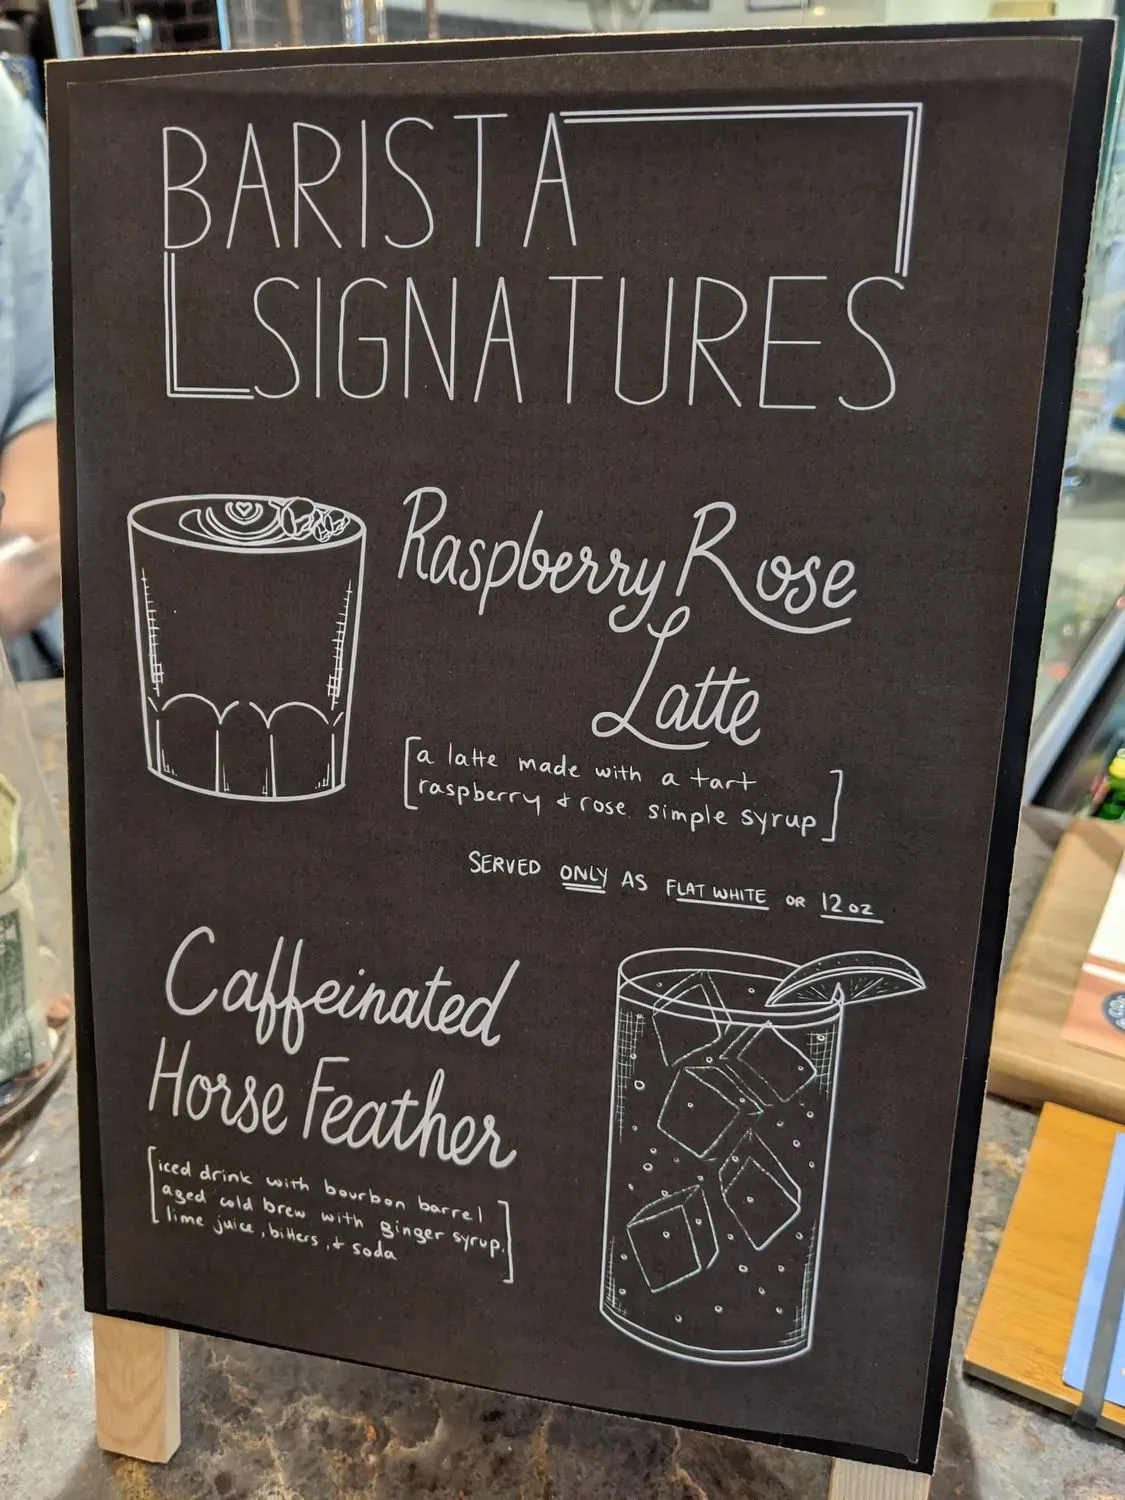 BARISTA
SIGNATURES
Raspberry Rose
Latte
[a latte made with a tart
raspberry & rose simple syrup]
SERVED ONLY AS FLAT WHITE OR 12 oz
Caffeinated
Horse Feather
[iced drink with bourbon barrel
aged cold brew with ginger syrup,
lime juice, bitters, & soda]